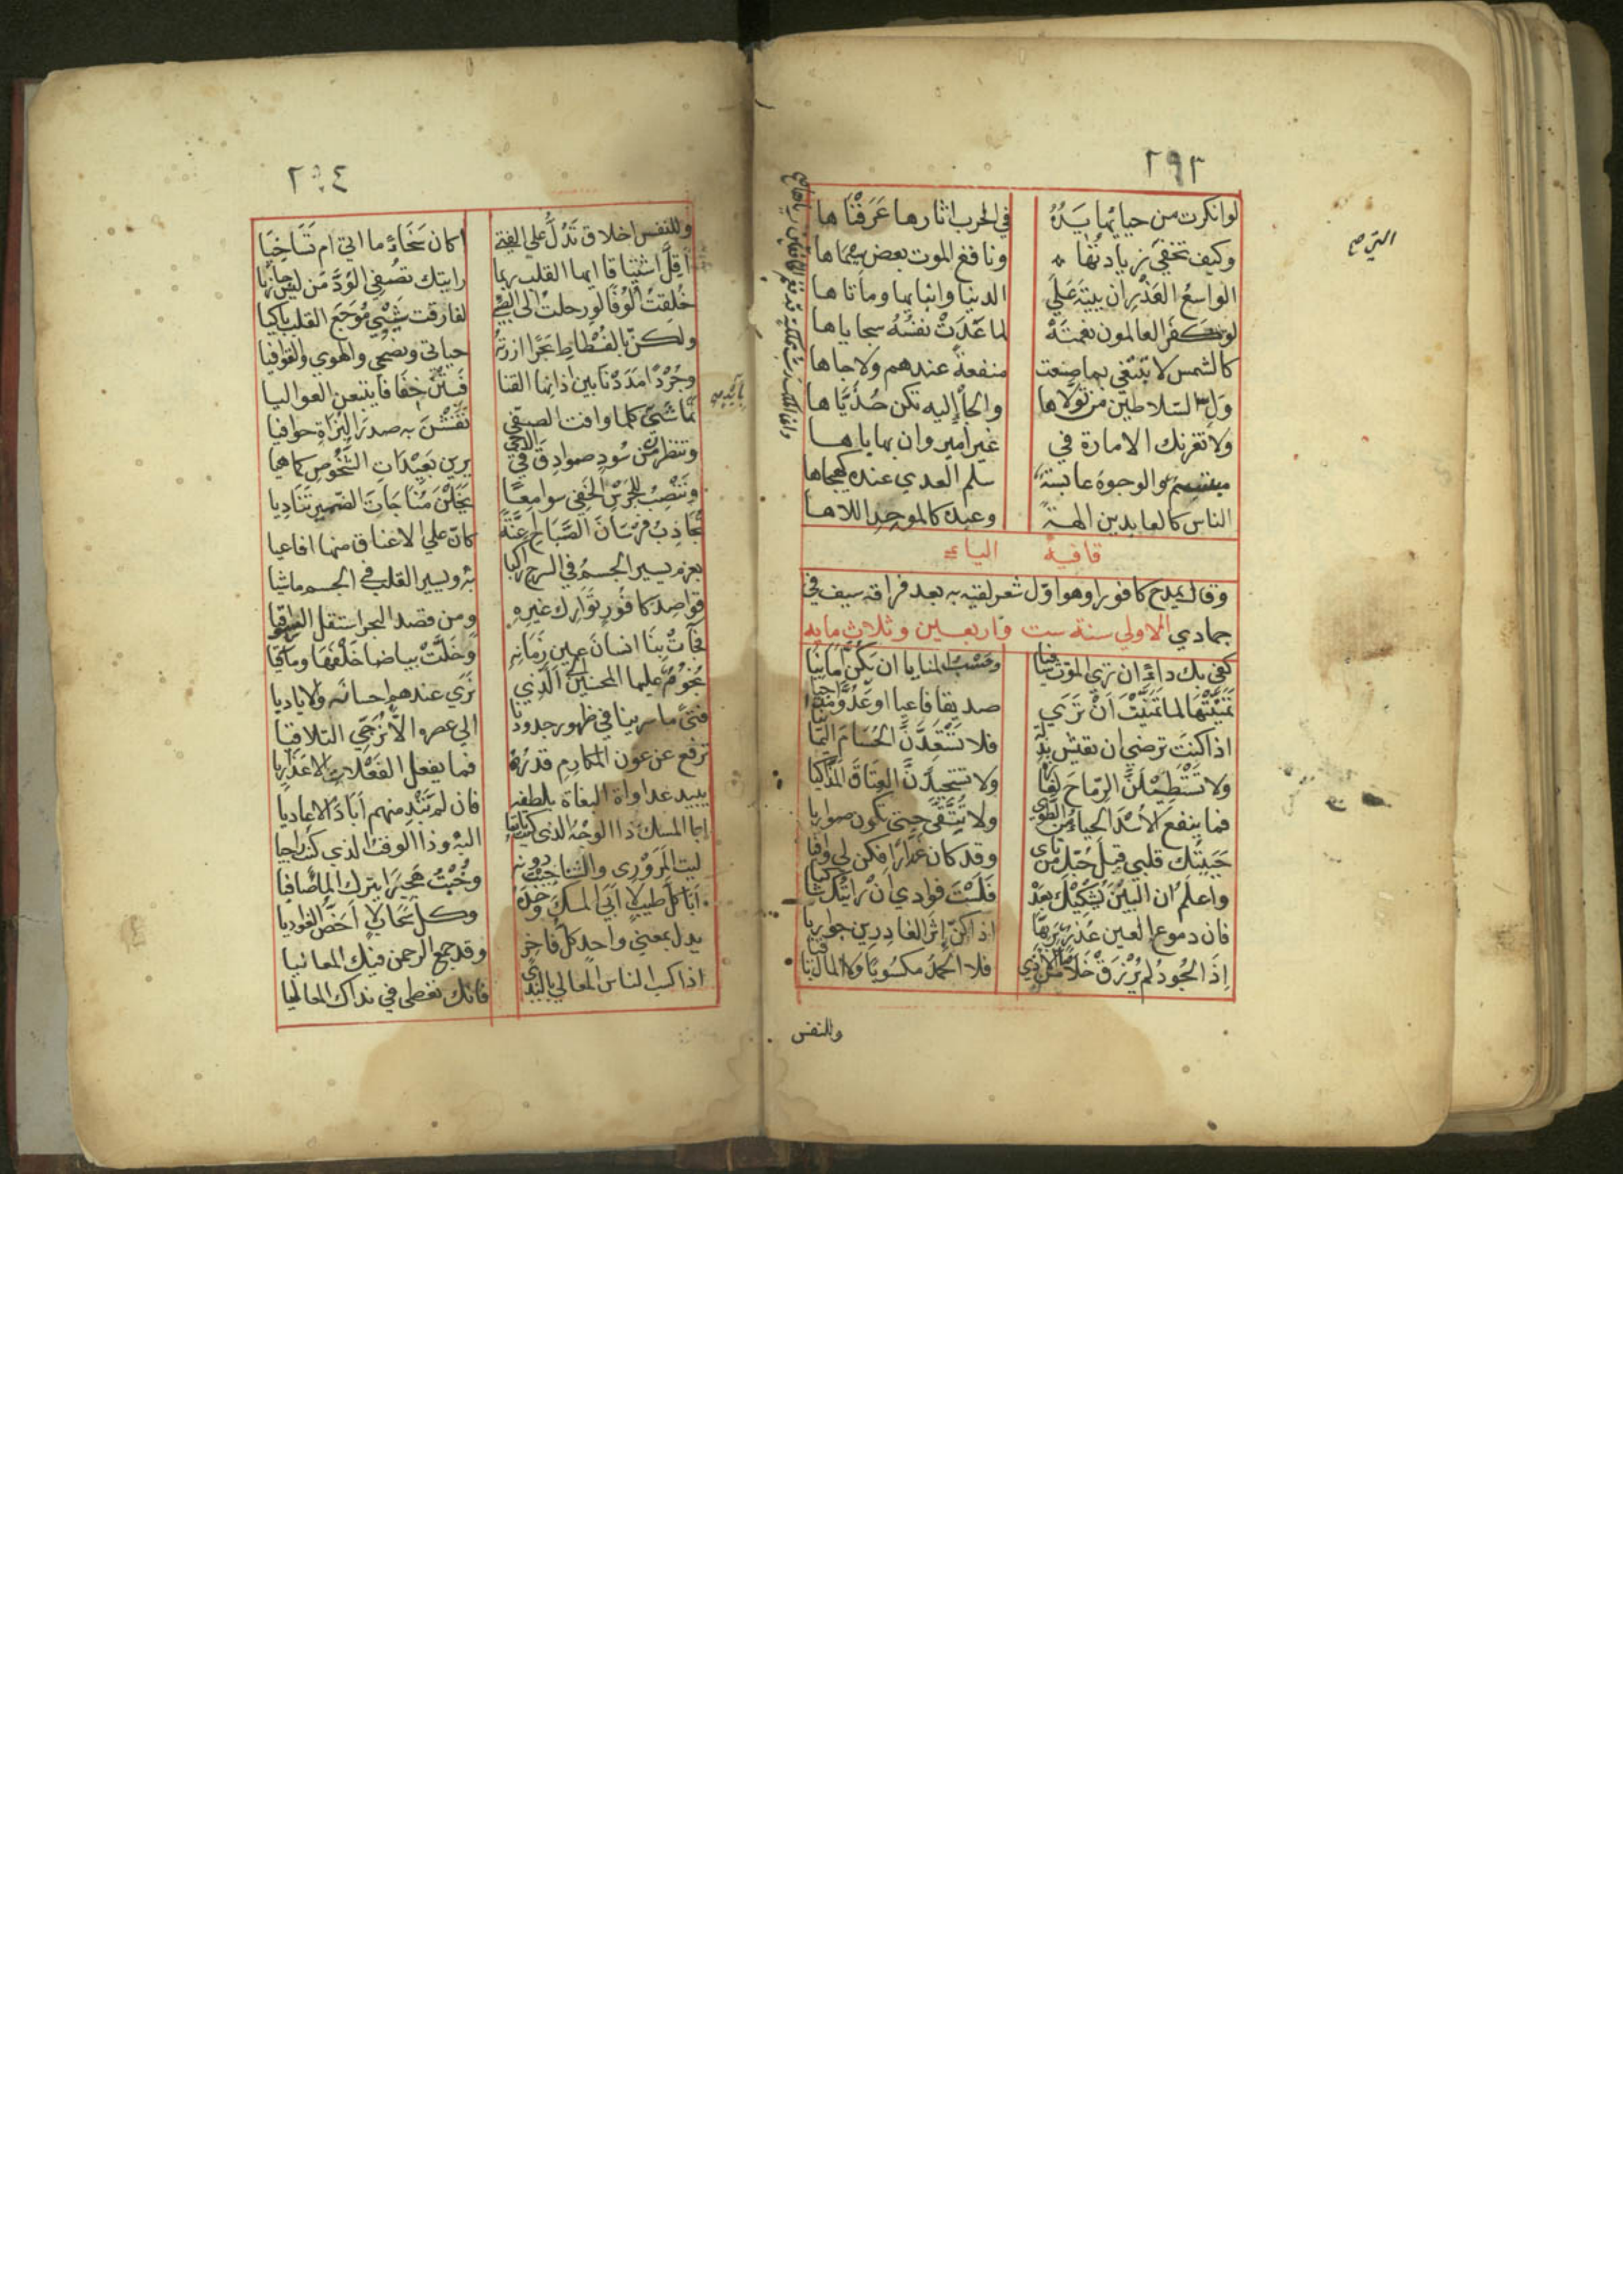 ٢٩٣
لو انكرت من حيائها يده في الحرب اثارها عَرَفْنَا ها
وكيف تخفي زيادتها ونافع الموت بعض سيماها
الواسع العذر ان يتيه علي الدنيا وابنايها وما تاها
لو كفر العالمون نعمته لما عَدَتْ نفسُهُ سجاياها
كالشمس لا تبتغي بما صنعت منفعة عندهم ولا جاها
وَلِ السّلاطين من تولاها والجأ إليه تكن حُدَيّاها
ولا تغرنك الامارة في غير امير وان بها باها
مبتسم والوجوه عابسة سلم العدي عنده كهيجاها
الناس كالعابدين الهة وعبده كالموحد اللاها
قافية الياء
وقال يمدح كافورا وهو اوّل شعر لقيه به بعد فراقه سيف في
جمادي الاولي سنة ست واربعين وثلاث مايه
كفي بك داءً ان تري الموت شافيا وحسب المنايا ان يكنّ امانيا
تَمَنَّيْتَهَا لما تَمَنَّيْتَ اَنْ تَرَي صديقا فاعيا او عَدُوّا مداجيا
اذا كنتَ ترضي ان تعيش بذلّة فلا تَسْتَعِدَّنَّ الحُسَامَ اليمانيا
ولا تَسْتَطِيْلَنَّ الرّماحَ لغارة ولا تستجيدَنَّ العِتَاقَ المذاكيا
فما ينفع الاُسْدَ الحياءُ من الطوي ولا تُتَّقَي حتي تكون ضواريا
حَبَبْتُك قلبي قبل حُبّك من ناى وقد كان غدّارًا فكن لي وافيا
واعلم ان البين يُشْكِيْكَ بعده فَلَسْتَ فوادي انْ رايتُك شاكيا
فان دموع العين غُدْرٌ بربّها اذا كنّ إِثْرَ الغادِرِين جواريا
اِذَا الجُودُ لم يُرْزَقْ خَلاصًا من الاذي فلا الحمدُ مكسُوبًا ولا المال باقيا
وللنفس
وللنفس اخلاق تَدُلُّ علي الفتي اكان سَخَاءً ما اتي ام تَسَاخِيَا
اَقِلَّ اشتياقا ايها القلب ربما رايتك تصفي الوُدَّ من ليس جازيا
خُلِقتُ اَلُوْفًا لو رحلت الي الصبي لفارقت شَيْبِي مُوجَع القلب باكيا
ولكنّ بالفُسْطاط بحرا ازرته حياتي ونصحي والهوي والقوافيا
وجُرْدًا مَدَدْنَا بين اذانها القنا فَبِتْنَ خِفَافًا يتبعن العواليا
تَمَاشَي كلما وافت الصفي نَقَشْنَ به صدرَ البُزَاةِ حوافيا
وتنظر من سُودٍ صوادِقَ في الدجي يرين بعيداتِ الشُّخُوصِ كما هيا
وتَنْصِبُ للجَرْسِ الخفي سوامعًا يَخَلْنَ مُنَاجَاتَ الضمير تَنَادِيا
تُجَاذِبُ فُرْسَانَ الصَّبَاحِ اَعِنَّةً كانّ علي الاعناق منها افاعيا
بعزم يسير الجسمُ في السرج راكبا به ويسير القلب في الجسم ماشيا
قواصِدَ كافُورٍ تَوَارِكَ غيرِه ومن قصد البحر استقل السواقيا
فجآتْ بِنَا انسانَ عين زَمَانِهِ وَخَلَّتْ بياضا خَلْفَهَا ومآقيا
نجُوزُ عليها المحسنين الَي الّذي نَرَي عندهم احسانَه والاياديا
فتىً ما سرينا في ظهور جدودنا الي عصره الاّ نُرَجِّي التلاقيا
ترفع عن عون المكارِم قدرُهُ فما يفعل الفَعْلاتِ الا عذاريا
يبيد عداوات البغاة بلطفه فان لم تَبِدْ منهم اَبَادَ الاعاديا
ابا المسك ذا الوجهُ الذي كنت تايقا اليه وذا الوقت الذي كنت راجيا
لقيت المَرَوْرَى والشناخيب دونه وجُبْتُ هجيرًا يترك الماء صاديا
اَبَا كلّ طيبٍ لا اَبَي المسك وحده وكلّ سحابٍ لا اَخصّ الغواديا
يدل بمعني واحدٍ كلّ فاخر وقد جمع الرحمن فيك المعانيا
اذا كسب الناس المعالي بالندي فانك تعطي في نداك المعاليا